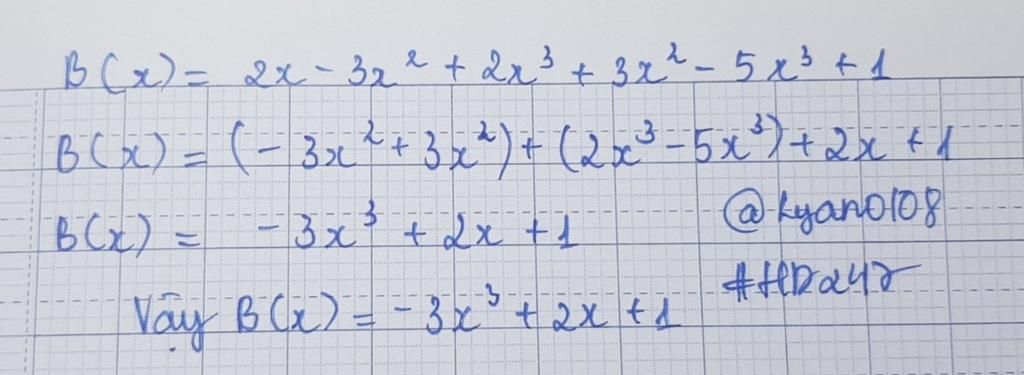 B(x) = 2x - 3x² + 2x³ + 3x² - 5x³ + 1
B(x) = (- 3x² + 3x²) + (2x³ - 5x³) + 2x + 1
B(x) = - 3x³ + 2x + 1
@kyan0108
Vậy B(x) = - 3x³ + 2x + 1